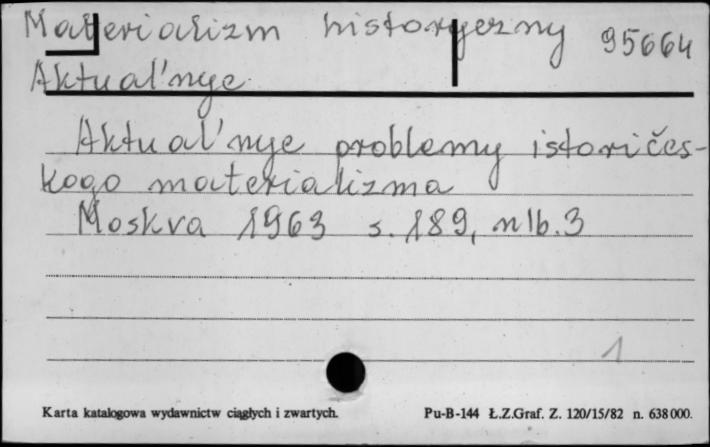 Materializm historyczny 95664
Aktual'nye
Aktual'nye problemy istoričes-
kogo materializma
Moskva 1963 s. 189, nlb. 3
1
Karta katalogowa wydawnictw ciągłych i zwartych. Pu-B-144 Ł.Z.Graf. Z. 120/15/82 n. 638 000.